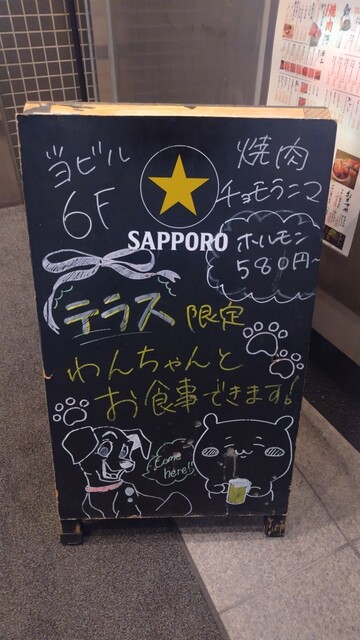 当ビル
6F
SAPPORO
焼肉
チョモランマ
ホルモン
580円~
テラス 限定
わんちゃんと
お食事できます!
Come
here!!